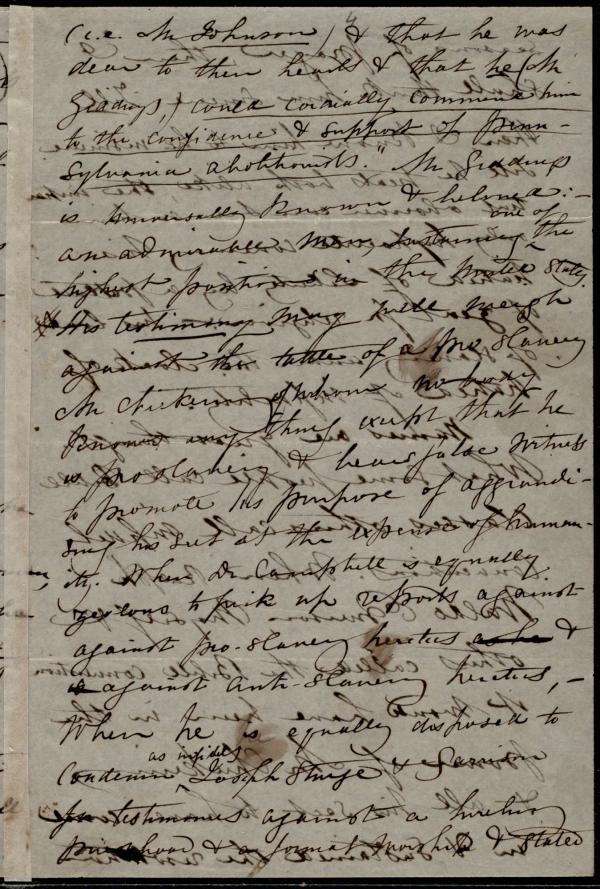 (i.e. Mr Johnson) & that he was
dear to their hearts & that he (Mr
Giddings,) could cordially commend him
to the confidence & support of Penn-
sylvania abolitionists." Mr Giddings
is universally known & beloved:-
an admirable man, sustaining one of the
highest positions in the United States.
His testimony may well weigh
against the tattle of a pro slavery
Mr of whom nobody
knows any thing except that he
is proslavery & bears false witness
to promote his purpose of aggrandi-
sing his sect at the expense of human-
ity. When Dr Campbell is equally
zealous to pick up reports against
against pro-slavery heretics as he &
is against anti-slavery heretics,-
When he is equally disposed to
condemn as infidels Joseph Sturge & Garrison
for testimonies against a hireling
priesthood & a formal worship & stated